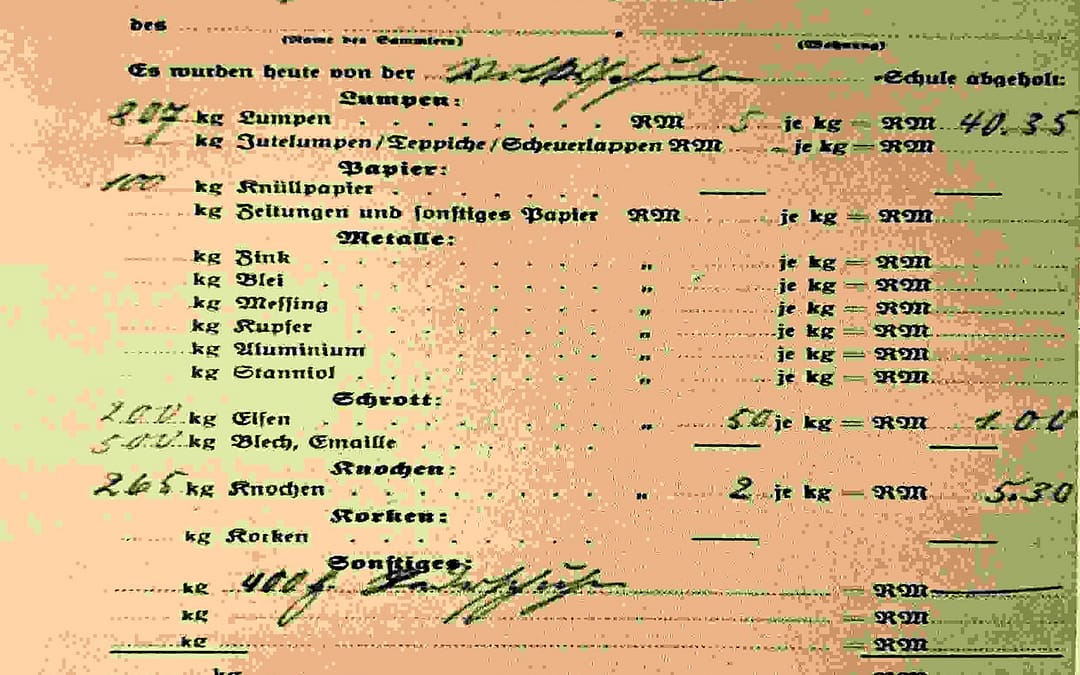 des
(Name des Sammlers) (Wohnung)
Es wurden heute von der -Schule abgeholt:
Lumpen:
807 kg Lumpen . . . . . . . RM 5 je kg = RM 40.35
kg Jutelumpen/Teppiche/Scheuerlappen RM je kg = RM
Papier:
100 kg Knüllpapier . . . . . .
kg Zeitungen und sonstiges Papier RM je kg = RM
Metalle:
kg Zink . . . . . . . " je kg = RM
kg Blei . . . . . . . " je kg = RM
kg Messing . . . . . . " je kg = RM
kg Kupfer . . . . . . " je kg = RM
kg Aluminium . . . . . " je kg = RM
kg Stanniol . . . . . . " je kg = RM
Schrott:
200 kg Eisen . . . . . . . " 50 je kg = RM 1.00
500 kg Blech, Emaille . . . . .
Knochen:
265 kg Knochen . . . . . . . " 2 je kg = RM 5.30
Korken:
kg Korken . . . . . . .
Sonstiges:
kg 400 = RM
kg = RM
kg = RM
kg RM